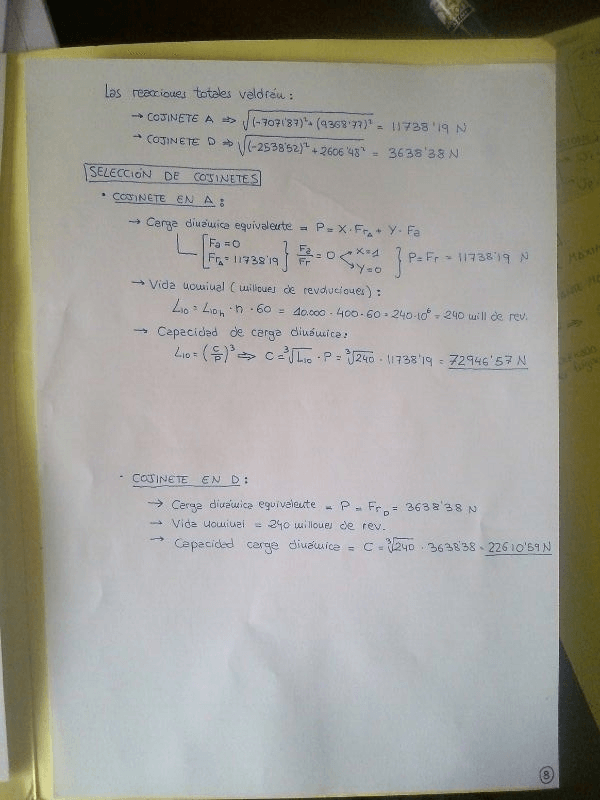 Las reacciones totales valdrán:
→ COJINETE A ⇒ √(-7071'87)² + (9368'77)² = 11738'19 N
→ COJINETE D ⇒ √(-2538'52)² + 2606'48² = 3638'38 N
SELECCIÓN DE COJINETES
• COJINETE EN A:
→ Carga dinámica equivalente = P = X · Fr_A + Y · Fa
[Fa = 0
Fr_A = 11738'19] } Fa/Fr = 0 < X=1 Y=0 } P = Fr = 11738'19 N
→ Vida nominal (millones de revoluciones):
L10 = L10h · n · 60 = 10.000 · 400 · 60 = 240·10⁶ = 240 mill de rev.
→ Capacidad de carga dinámica:
L10 = (C/P)³ ⇒ C = ³√L10 · P = ³√240 · 11738'19 = 72946'57 N
· COJINETE EN D:
→ Carga dinámica equivalente = P = Fr_D = 3638'38 N
→ Vida nominal = 240 millones de rev.
→ Capacidad carga dinámica = C = ³√240 · 3638'38 = 22610'59 N
8